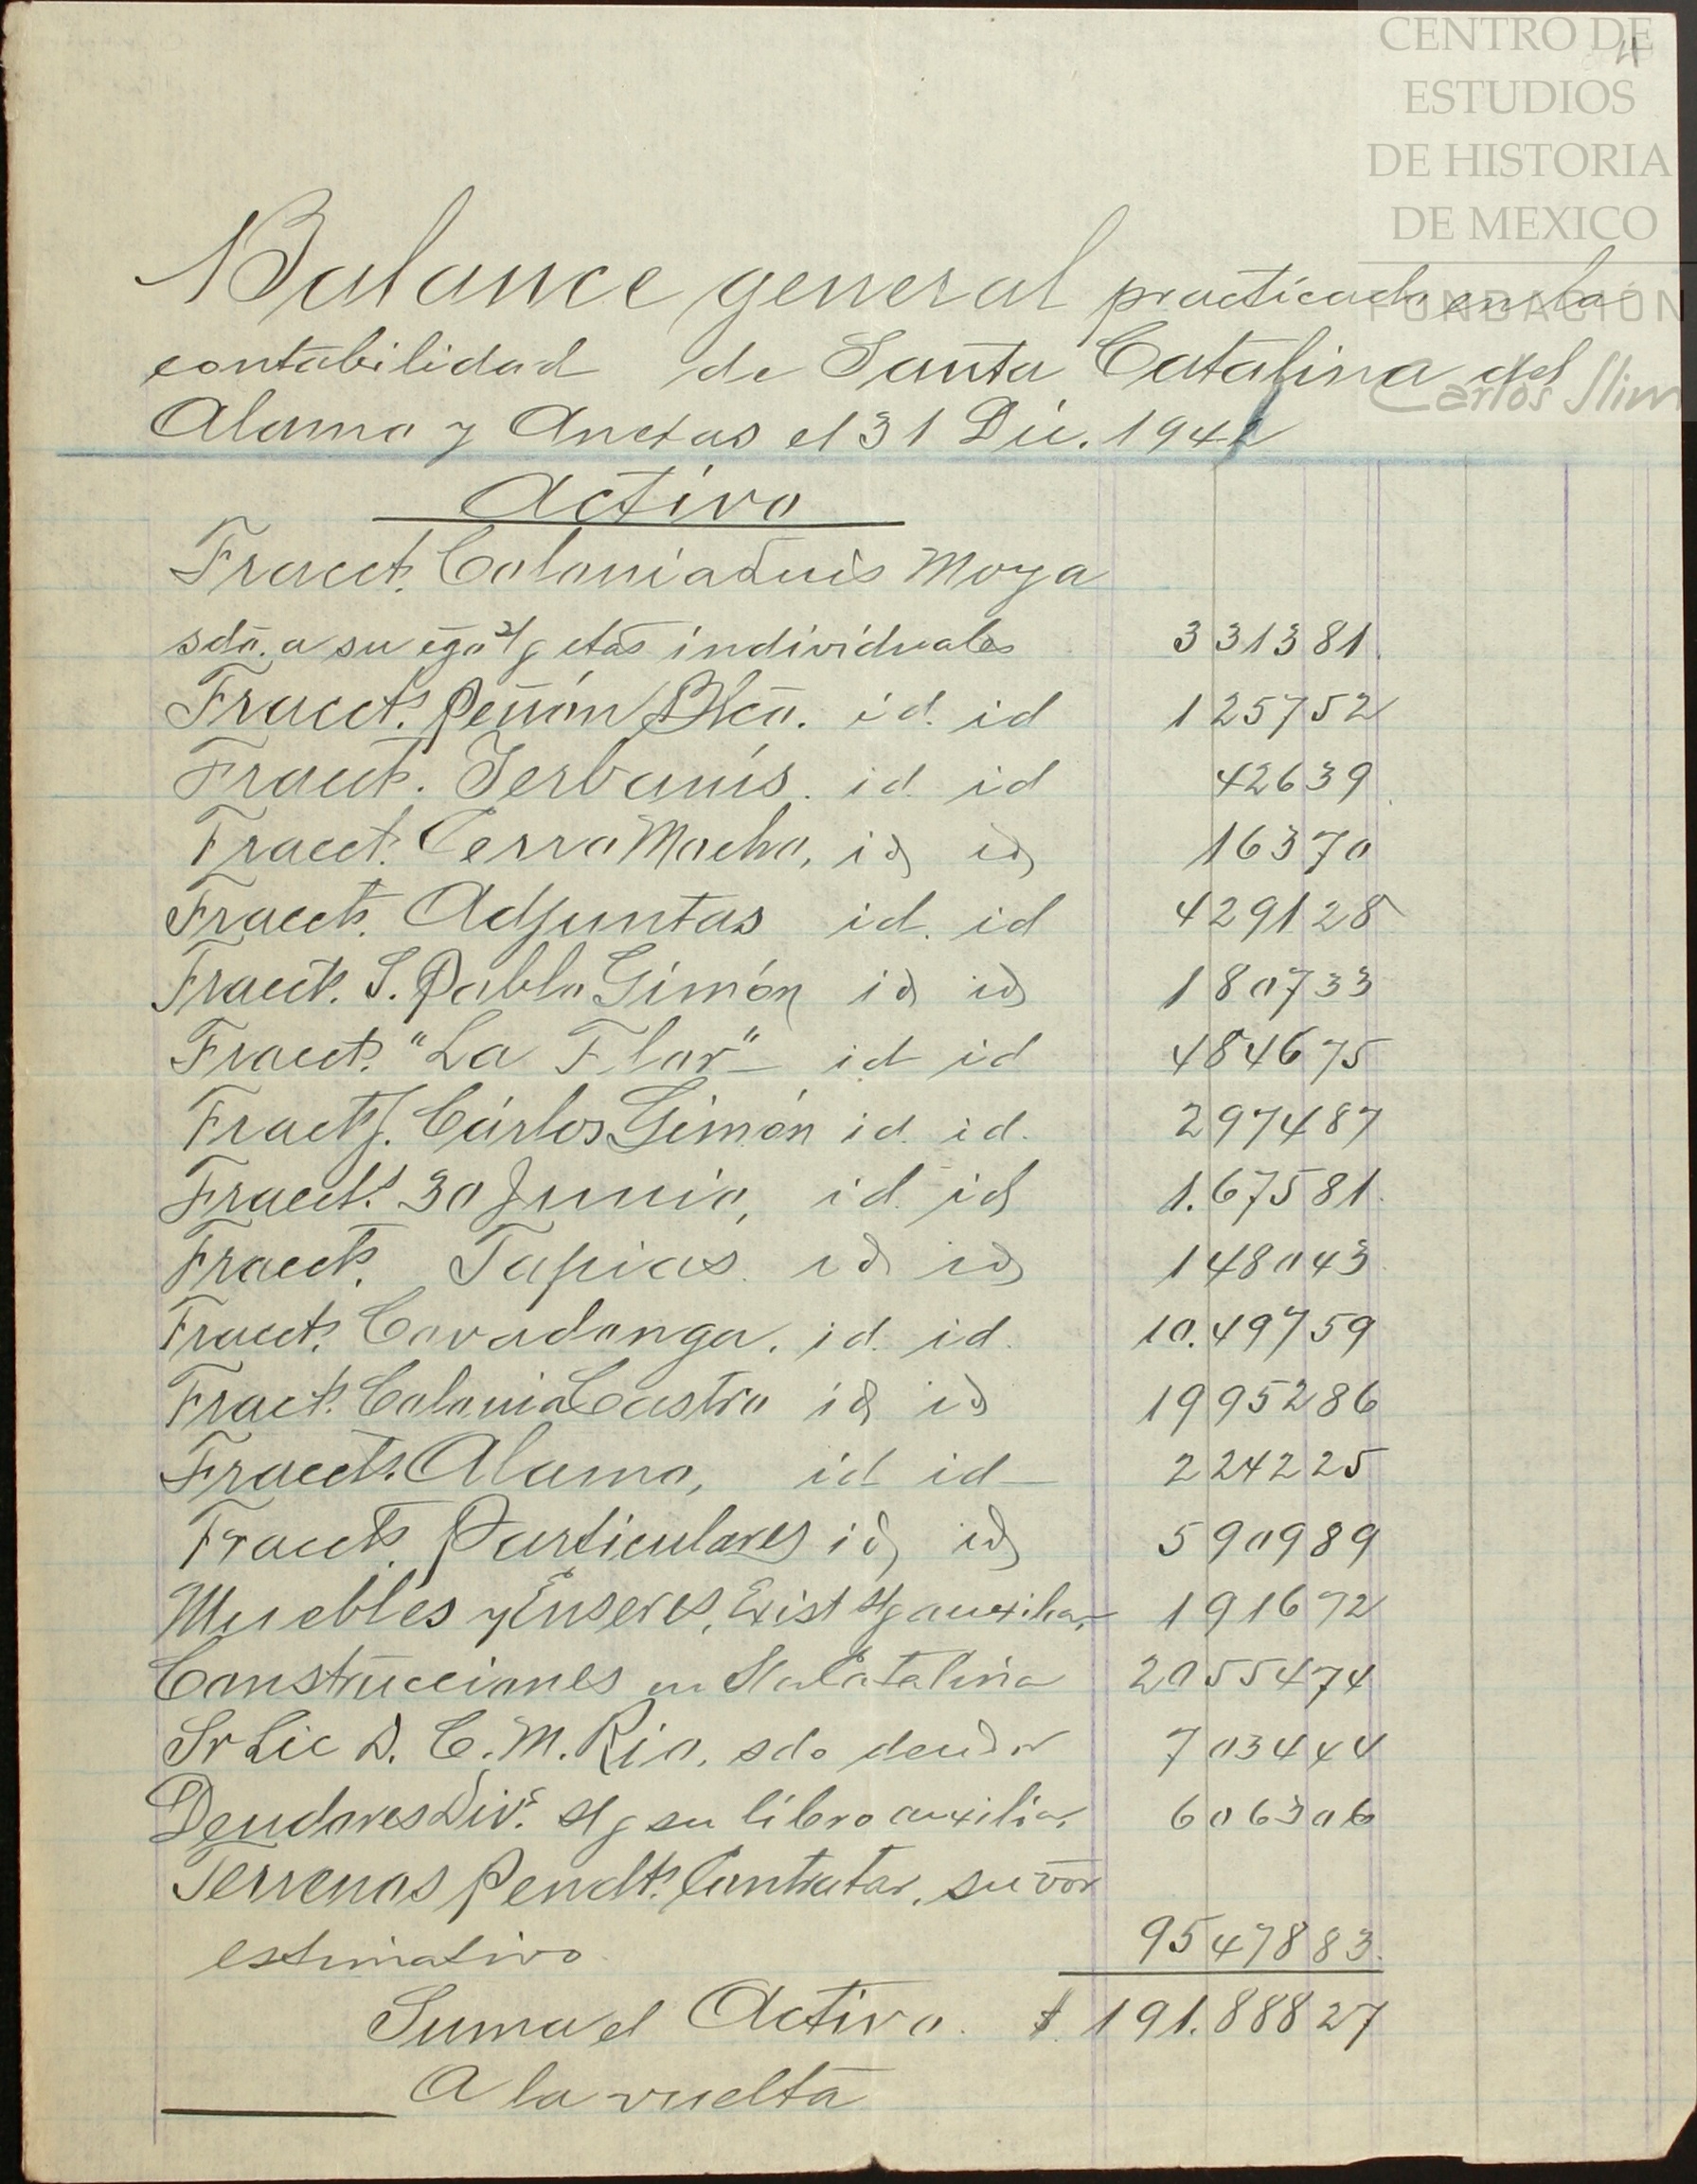 CENTRO DE
ESTUDIOS
DE HISTORIA
DE MEXICO
FUNDACIÓN
Carlos Slim
4
Balance general practicado en la
contabilidad de Santa Catalina del
Alamo y Anexas el 31 Dic. 194
Activo
Fracct. Colonia Luis Moya
sdo. a su cgo s/g ctas individuales 331381.
Fracct. Peñón Blco. id. id 125752
Fracct. Yerbanís. id id 42639
Fracct. Cerro Mocho, id id 16370
Fracct. Adjuntas id. id 429128
Fracct. S. Pablo Gimón id id 180733
Fracct. "La Flor" id id 484675
Fracct. Cárlos Gimón id. id. 297487
Fracct. 30 Junio, id. id 1.67581.
Fracct. Tapias. id id 148043
Fracct. Covadonga. id. id. 10.49759
Fracct. Colonia Castro id id 1995286
Fracct. Alamo, id id 224225
Fracct. Particulares id id 590989
Muebles y Enseres, Exist s/g auxiliar 191672
Construcciones en Sta Catalina 2055474
Sr Lic D. C. M. Rio, sdo deudor 703444
Deudores Div.s s/g su libro auxiliar 606306
Terrenos Pendts. Contratar, su vor
estimativo 9547883.
Suma el Activo. $ 191.88827
A la vuelta